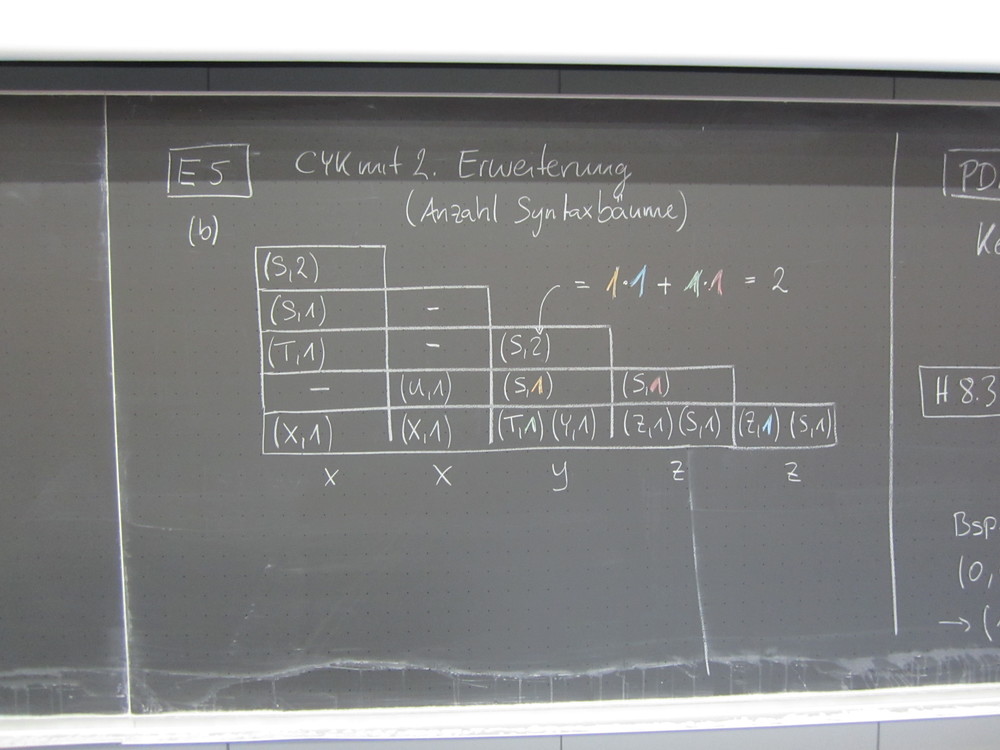 E5 CYK mit 2. Erweiterung
(Anzahl Syntaxbäume)
(b)
(S,2)
= 1·1 + 1·1 = 2
(S,1) -
(T,1) - (S,2)
- (U,1) (S,1) (S,1)
(X,1) (X,1) (T,1) (Y,1) (Z,1) (S,1) (Z,1) (S,1)
x x y z z
PD
H 8.3
Bsp.
(0,
→ (